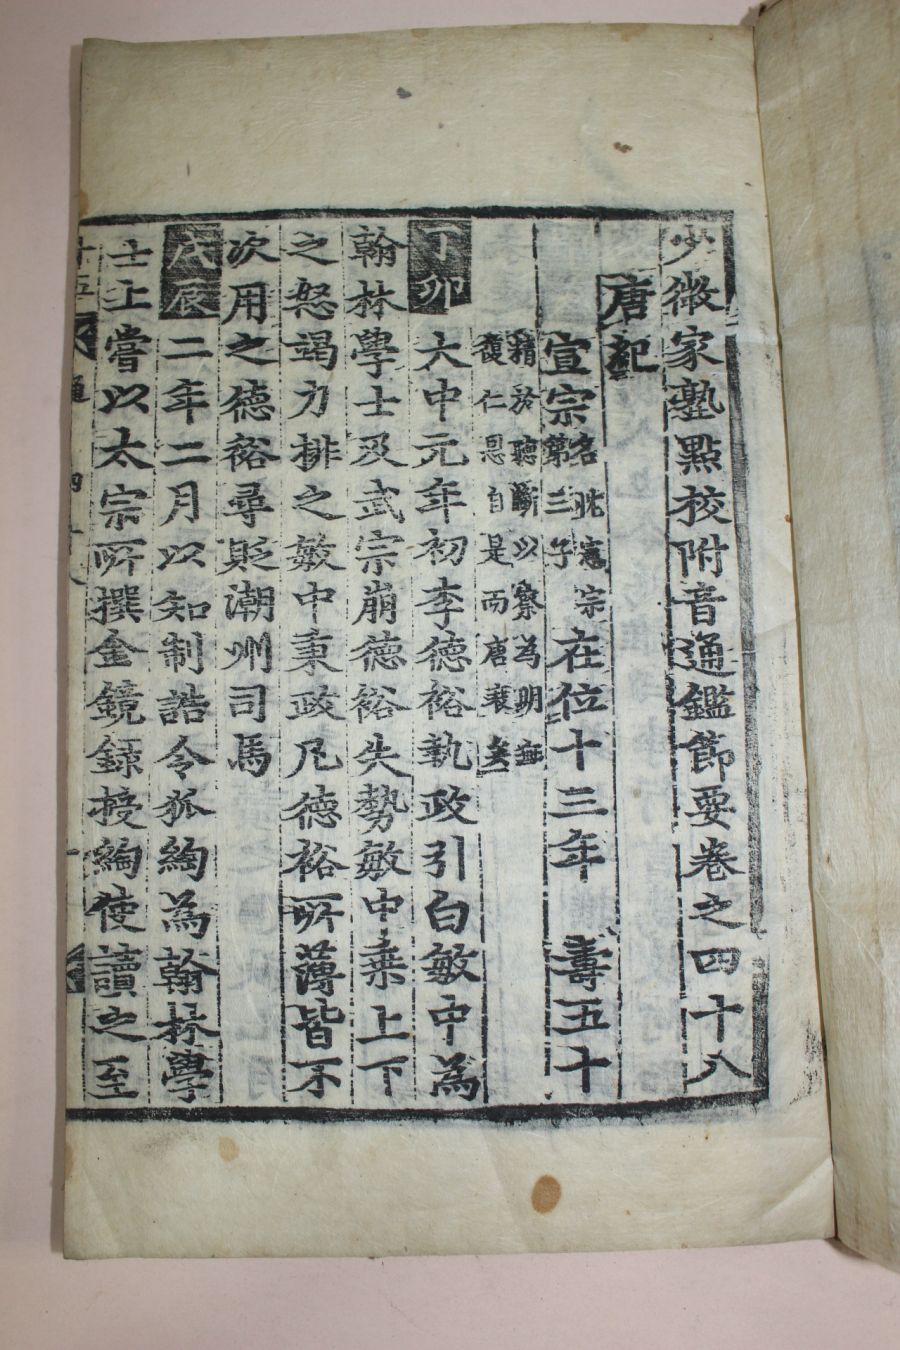 少微家塾點校附音通鑑節要卷之四十八
唐紀
宣宗
名忱憲宗
第三子
在位十三年 壽五十
精於聽斷以察為明無
復仁恩自是而唐衰矣
丁卯 大中元年初李德裕執政引白敏中為
翰林學士及武宗崩德裕失勢敏中乗上下
之怒竭力排之敏中秉政凡德裕所薄皆不
次用之德裕尋貶潮州司馬
戊辰 二年二月以知制誥令狐綯為翰林學
士上嘗以太宗所撰金鏡錄授綯使讀之至